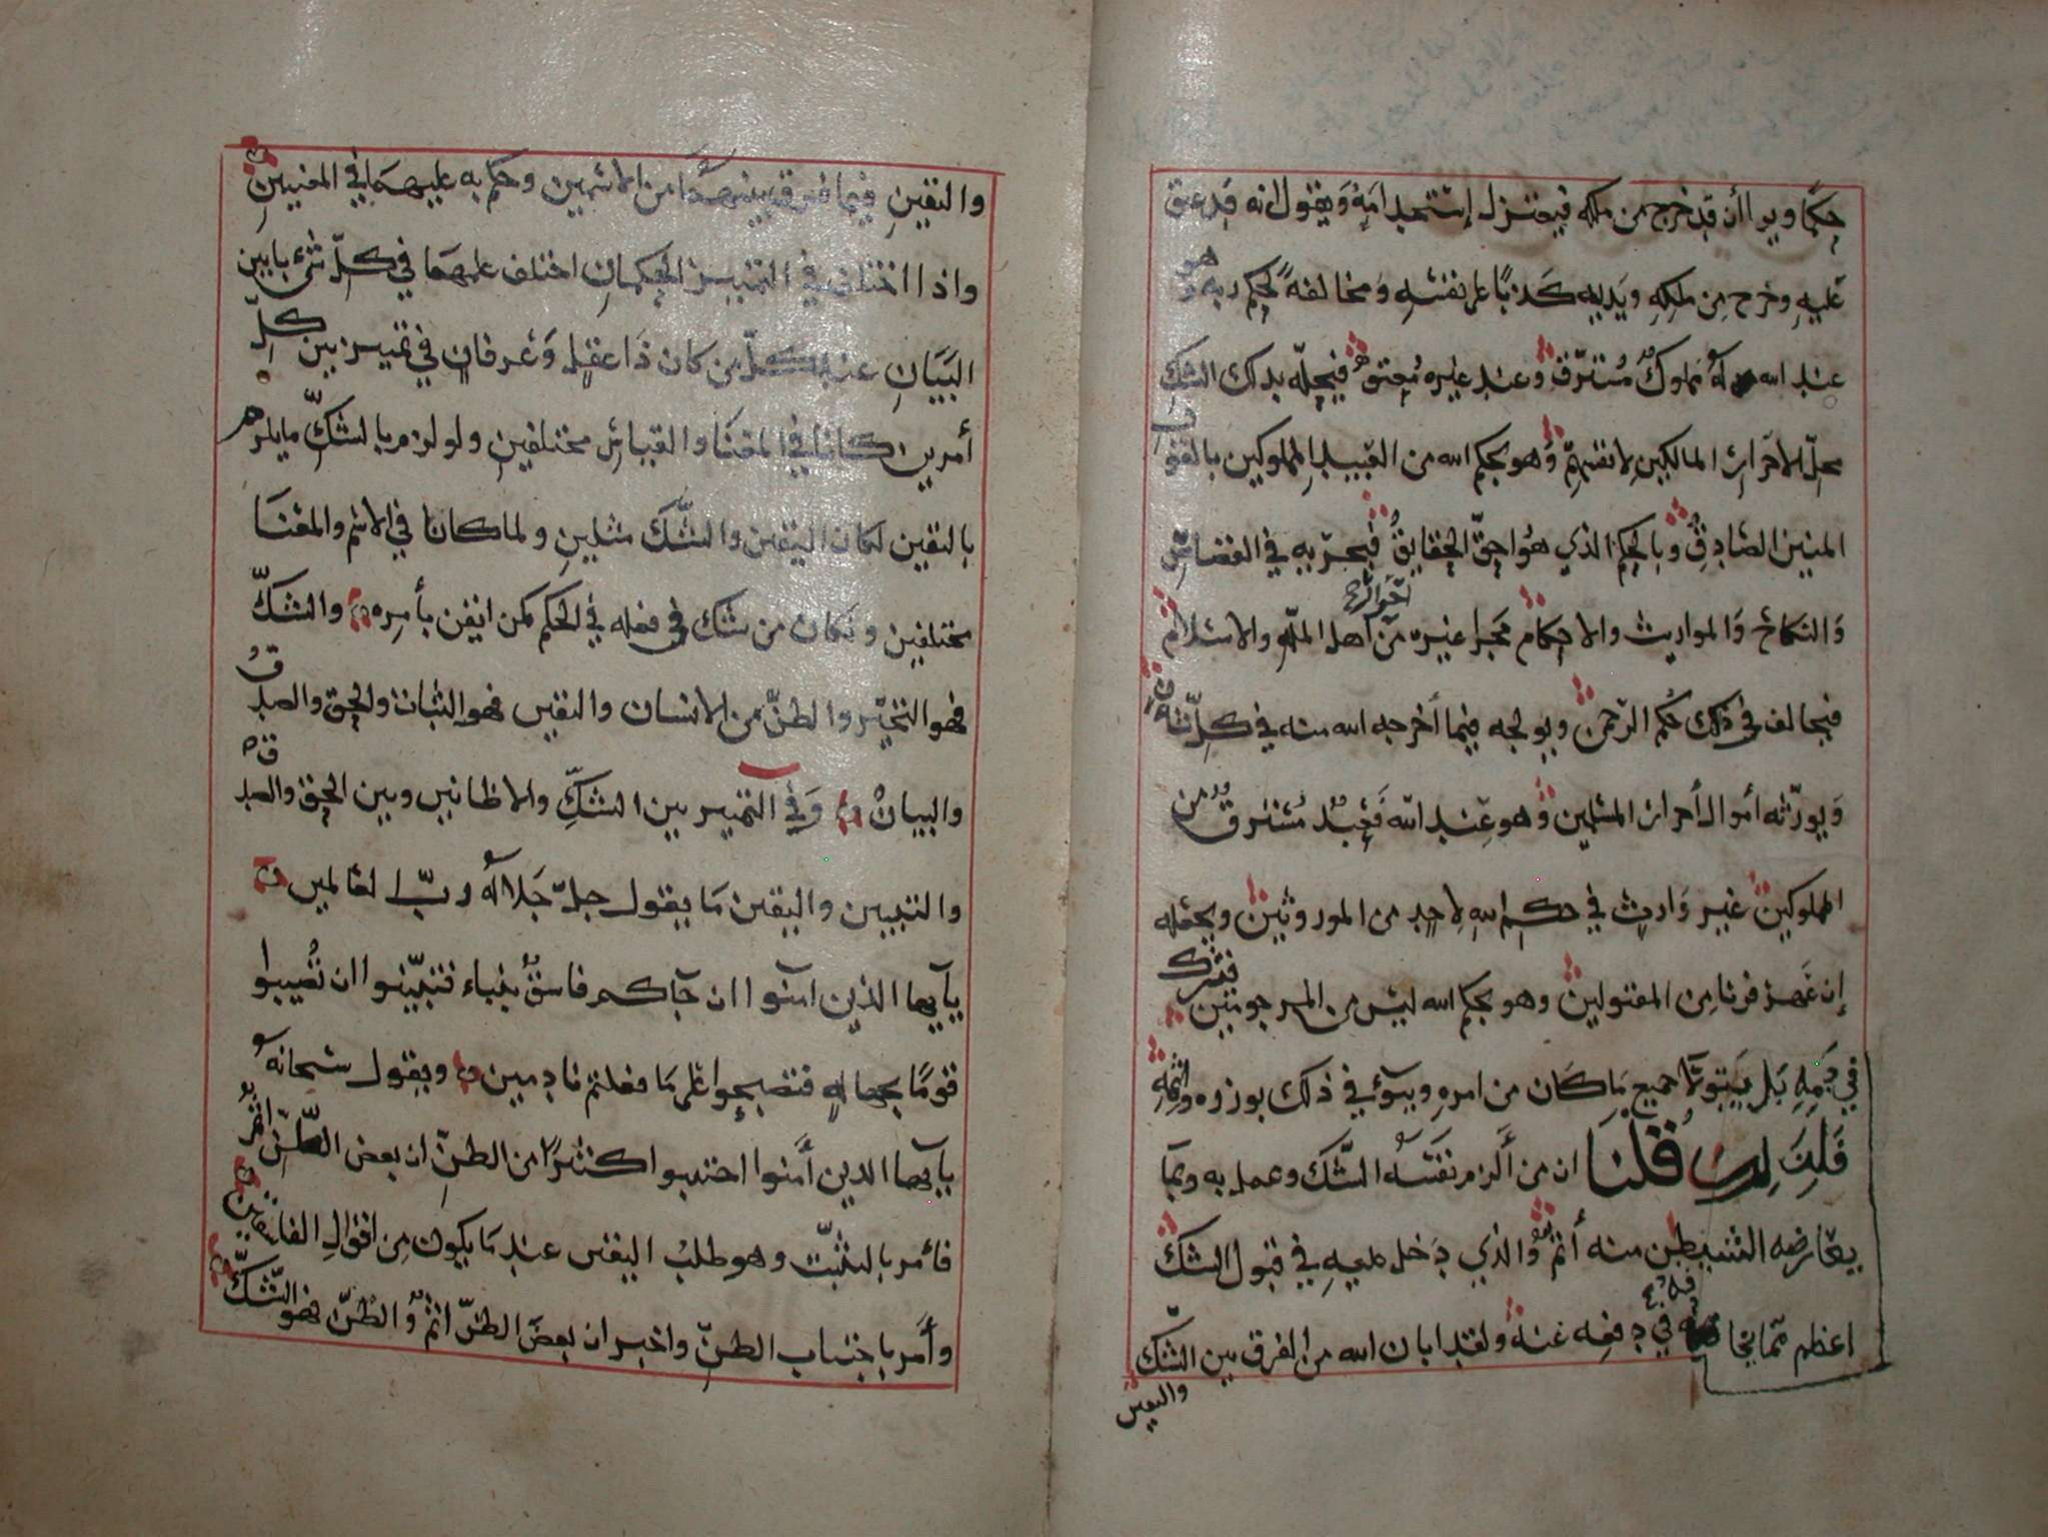 حكما ويرا أن قد خرج من ملكه فيعتزل إستحدامه ويقول انه قد عتق
عليه وخرج من ملكه ويديه كذبا على نفسه ومخالفة لحكم ربه وهو
عند الله له مملوك مسترق وعند غيره معتق فيحله بذلك الشك
محل الاحرار المالكين لانفسهم وهو بحكم الله من العبيد المملوكين بالقول
المبين الصادق وبالحكم الذي هو احق الحقايق فيجريه في القصاص
والنكاح والمواريث والاحكام مجرا غيره من أحرار اهل الملة والاسلام
فيخالف في ذلك حكم الرحمن ويولجه فيما أخرجه الله منه في كل شان
ويورثه أموال أحرار المسلمين وهو عند الله فعبد مسترق من
المملوكين غير وارث في حكم الله لاحد من الموروثين ويجعله
إن من المقتولين وهو بحكم الله ليس من فيشرك
في دمه بل يتولا جميع ما كان من امره ويبوء في ذلك بوزره واثمه
فلذلك قلنا ان من ألزم نفسه الشك وعمل به وبما
يعارضه الشيطن منه أثم والذي دخل عليه في قبول الشك
اعظم مما يخاف في دفعه عنه ولقد ابان الله من الفرق بين الشك
واليقين
واليقين فيما فرق بينهما من الاسمين وحكم به عليهما في المعنيين
واذا اختلف في التمييز الحكمان اختلف علمهما في كل شيء بابين
البيان عند كل من كان ذا عقل وعرفان في تمييز بين كل
أمرين كانا في المعنا والقياس مختلفين ولو لزم بالشك ما يلزم
باليقين لكان اليقين والشك مثلين ولما كانا في الاسم والمعنا
مختلفين ولكان من شك في فعله في الحكم كمن ايقن بأمره والشك
فهو التحير والظن من الانسان واليقين فهو الثبات والحق والصدق
والبيان وفي التمييز بين الشك والاظانين وبين الحق والصدق
والتبيين واليقين ما يقول جل جلاله رب العالمين
يأيها الذين امنوا ان جآكم فاسق بنباء فتبينوا ان تصيبوا
قوما بجهالة فتصبحوا على ما فعلتم نادمين ويقول سبحانه
يأيها الذين أمنوا اجتنبوا كثيرا من الظن ان بعض الظن اثم
فأمر بالتثبت وهو طلب اليقين عند ما يكون من اقوال الفاسقين
وأمر باجتناب الظن واخبر ان بعض الظن اثم والظن فهو الشك